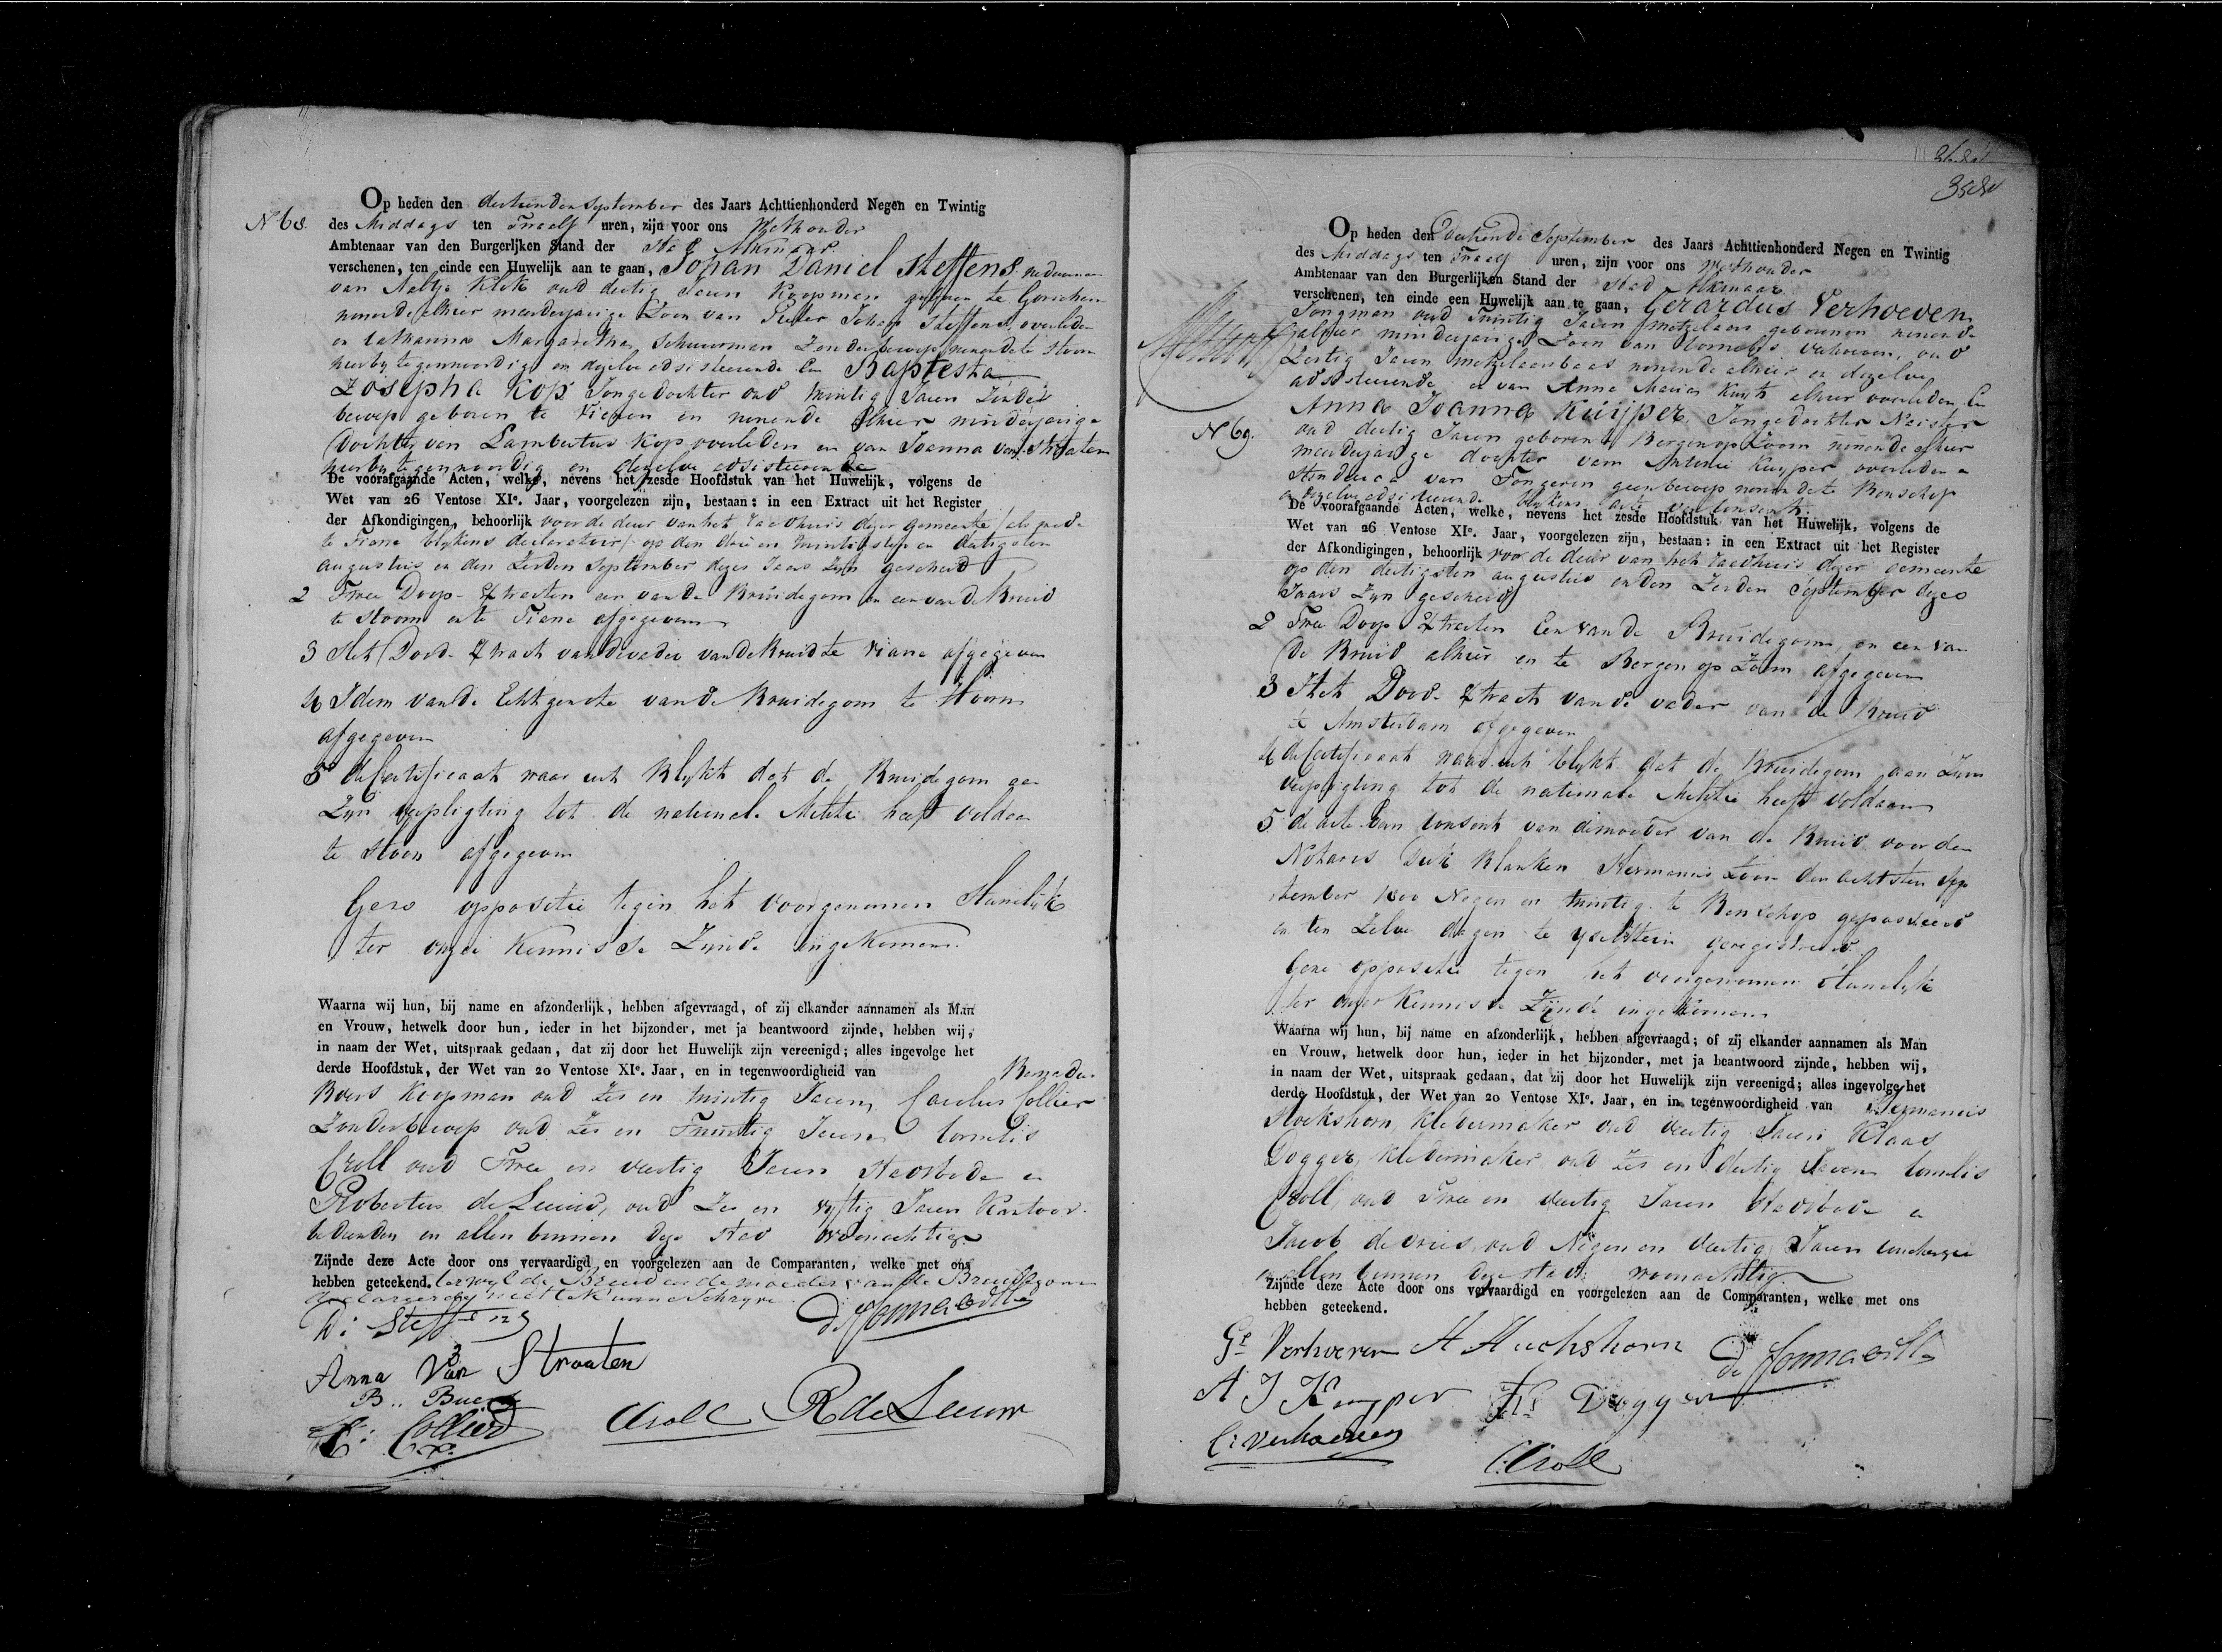 N 68.
Op heden den dertienden september des Jaars Achttienhonderd Negen en Twintig
des Middags ten Twaalf uren, zijn voor ons Wethouder
Ambtenaar van den Burgerlijken Stand der Stad Alkmaar
verschenen, ten einde een Huwelijk aan te gaan, Johan Daniel Steffens weduwnaar
van Aaltje Klok oud dertig Jaren Koopman geboren te Gorichem
wonende alhier meerderjarige Zoon van Pieter Johan Steffens overleden
en Catharina Margaretha Schuurman Zonder beroep wonende te Hoorn
hierby tegenwoordig en dezelve adsisteerende En Baptesta
Josepha Kop Jonge dochter oud twintig Jaren Zonder
beroep geboren te Vianen en wonende alhier minderjarige
Dochter van Lambertus Kop overleden en van Joanna van Straaten
hierby tegenwoordig en dezelve adsisteerende
De voorafgaande Acten, welke, nevens het zesde Hoofdstuk van het Huwelijk, volgens de
Wet van 26 Ventose XIe. Jaar, voorgelezen zijn, bestaan: in een Extract uit het Register
der Afkondigingen, behoorlijk voor de deur van het raadhuis dezer gemeente / als mede
te Viane blykens declaratoir / op den drie en twintigsten en dertigsten
augustus en den Zesden September dezes Jaars Zyn geschied
2 Twee Doop-Extracten een van de Bruidegom en een van de Bruid
te Hoorn en te Viane afgegeven
3 Het Dood-Extract van de vader van de Bruid te Viane afgegeven
4 Idem van de Echtgenote van de Bruidegom te Hoorn
afgegeven
5 de Certificaat waar uit Blykt dat de Bruidegom aan
Zyn verpligting tot de nationale Militie heeft voldaan
te Hoorn afgegeven
Geene oppositie tegen het voorgenomen Huwelijk
ter onzer Kennisse Zynde ingekomen.
Waarna wij hun, bij name en afzonderlijk, hebben afgevraagd, of zij elkander aannamen als Man
en Vrouw, hetwelk door hun, ieder in het bijzonder, met ja beantwoord zijnde, hebben wij,
in naam der Wet, uitspraak gedaan, dat zij door het Huwelijk zijn vereenigd; alles ingevolge het
derde Hoofdstuk, der Wet van 20 Ventose XIe. Jaar, en in tegenwoordigheid van
Koopman oud Zes en twintig Jaren, Carolus Collier
Zonder beroep oud Zes en Twintig Jaren Cornelis
Croll oud Twee en veertig Jaren Stadsbode en
Robertus de Leeuw, oud Zes en vyftig Jaren Kantoor-
bedienden en allen binnen deze Stad woonachtig
Zijnde deze Acte door ons vervaardigd en voorgelezen aan de Comparanten, welke met ons
hebben geteekend. terwyl de Bruid en de moeder van de Bruidegom
declareerden niet te Kunne Schryve
D: Steffens
Anna Van Straaten
C: Collier
CCroll R de Leeuw
N 69.
Op heden den Dertiende September des Jaars Achttienhonderd Negen en Twintig
des Middags ten Twaalf uren, zijn voor ons Wethouder
Ambtenaar van den Burgerlijken Stand der Stad Alkmaar
verschenen, ten einde een Huwelijk aan te gaan, Gerardus Verhoeven
Jongman oud Twintig Jaren metzelaar geboren en wonende
alhier minderjarige Zoon van Cornelis Verhoeven, oud
Zestig Jaren metzelaarsbaas wonende alhier en dezelve
adsisteerende en van Anna Maria Kuyt alhier overleden En
Anna Joanna Kuijper Jonge dochter Naister
oud dertig Jaren geboren te Bergen op Zoom wonende alhier
meerderjarige dochter van Antonie Kuyper overleden en
Hendrica van Tongeren geen beroep wonende te Benschop
en dezelve adsisteerende blykens acte van Consent.
De voorafgaande Acten, welke, nevens het zesde Hoofdstuk van het Huwelijk, volgens de
Wet van 26 Ventose XIe. Jaar, voorgelezen zijn, bestaan: in een Extract uit het Register
der Afkondigingen, behoorlijk voor de deur van het raadhuis dezer gemeente
op den dertigsten augustus en den Zesden September dezes
Jaars Zyn geschied
2 Twee Doop Extracten Een van de Bruidegom, en een van
de Bruid alhier en te Bergen op Zoom afgegeven
3 Het Dood-Extract van de vader van de Bruid
te Amsterdam afgegeven
4 de Certificaat waar uit blykt dat de Bruidegom aan Zyne
verpligting tot de nationale Militie heeft voldaan
5 de acte van Consent van de moeder van de Bruid voor den
Notaris Dirk Blanken Hermanus Zoon den achtsten Sep-
tember 1800 Negen en twintig te Benschop gepasseerd
en ten Zelve dagen te Yselstein geregistreerd.
Geene oppositie tegen het voorgenomen Huwelyk
ter onzer Kennisse Zynde ingekomen
Waarna wij hun, bij name en afzonderlijk, hebben afgevraagd; of zij elkander aannamen als Man
en Vrouw, hetwelk door hun, ieder in het bijzonder, met ja beantwoord zijnde, hebben wij,
in naam der Wet, uitspraak gedaan, dat zij door het Huwelijk zijn vereenigd; alles ingevolge het
derde Hoofdstuk, der Wet van 20 Ventose XIe. Jaar, en in tegenwoordigheid van Hermanus
Kledermaker oud veertig Jaren Klaas
Dogger, Kledermaker oud Zes en dertig Jaren Cornelis
Croll, oud Twee en veertig Jaren Stadsbode en
Jacob de Vries, oud Negen en veertig Jaren
en allen binnen deze stad woonachtig
Zijnde deze Acte door ons vervaardigd en voorgelezen aan de Comparanten, welke met ons
hebben geteekend.
Gs Verhoeven
A J Kuyper Ks Dogger
C: Verhoeven
CCroll